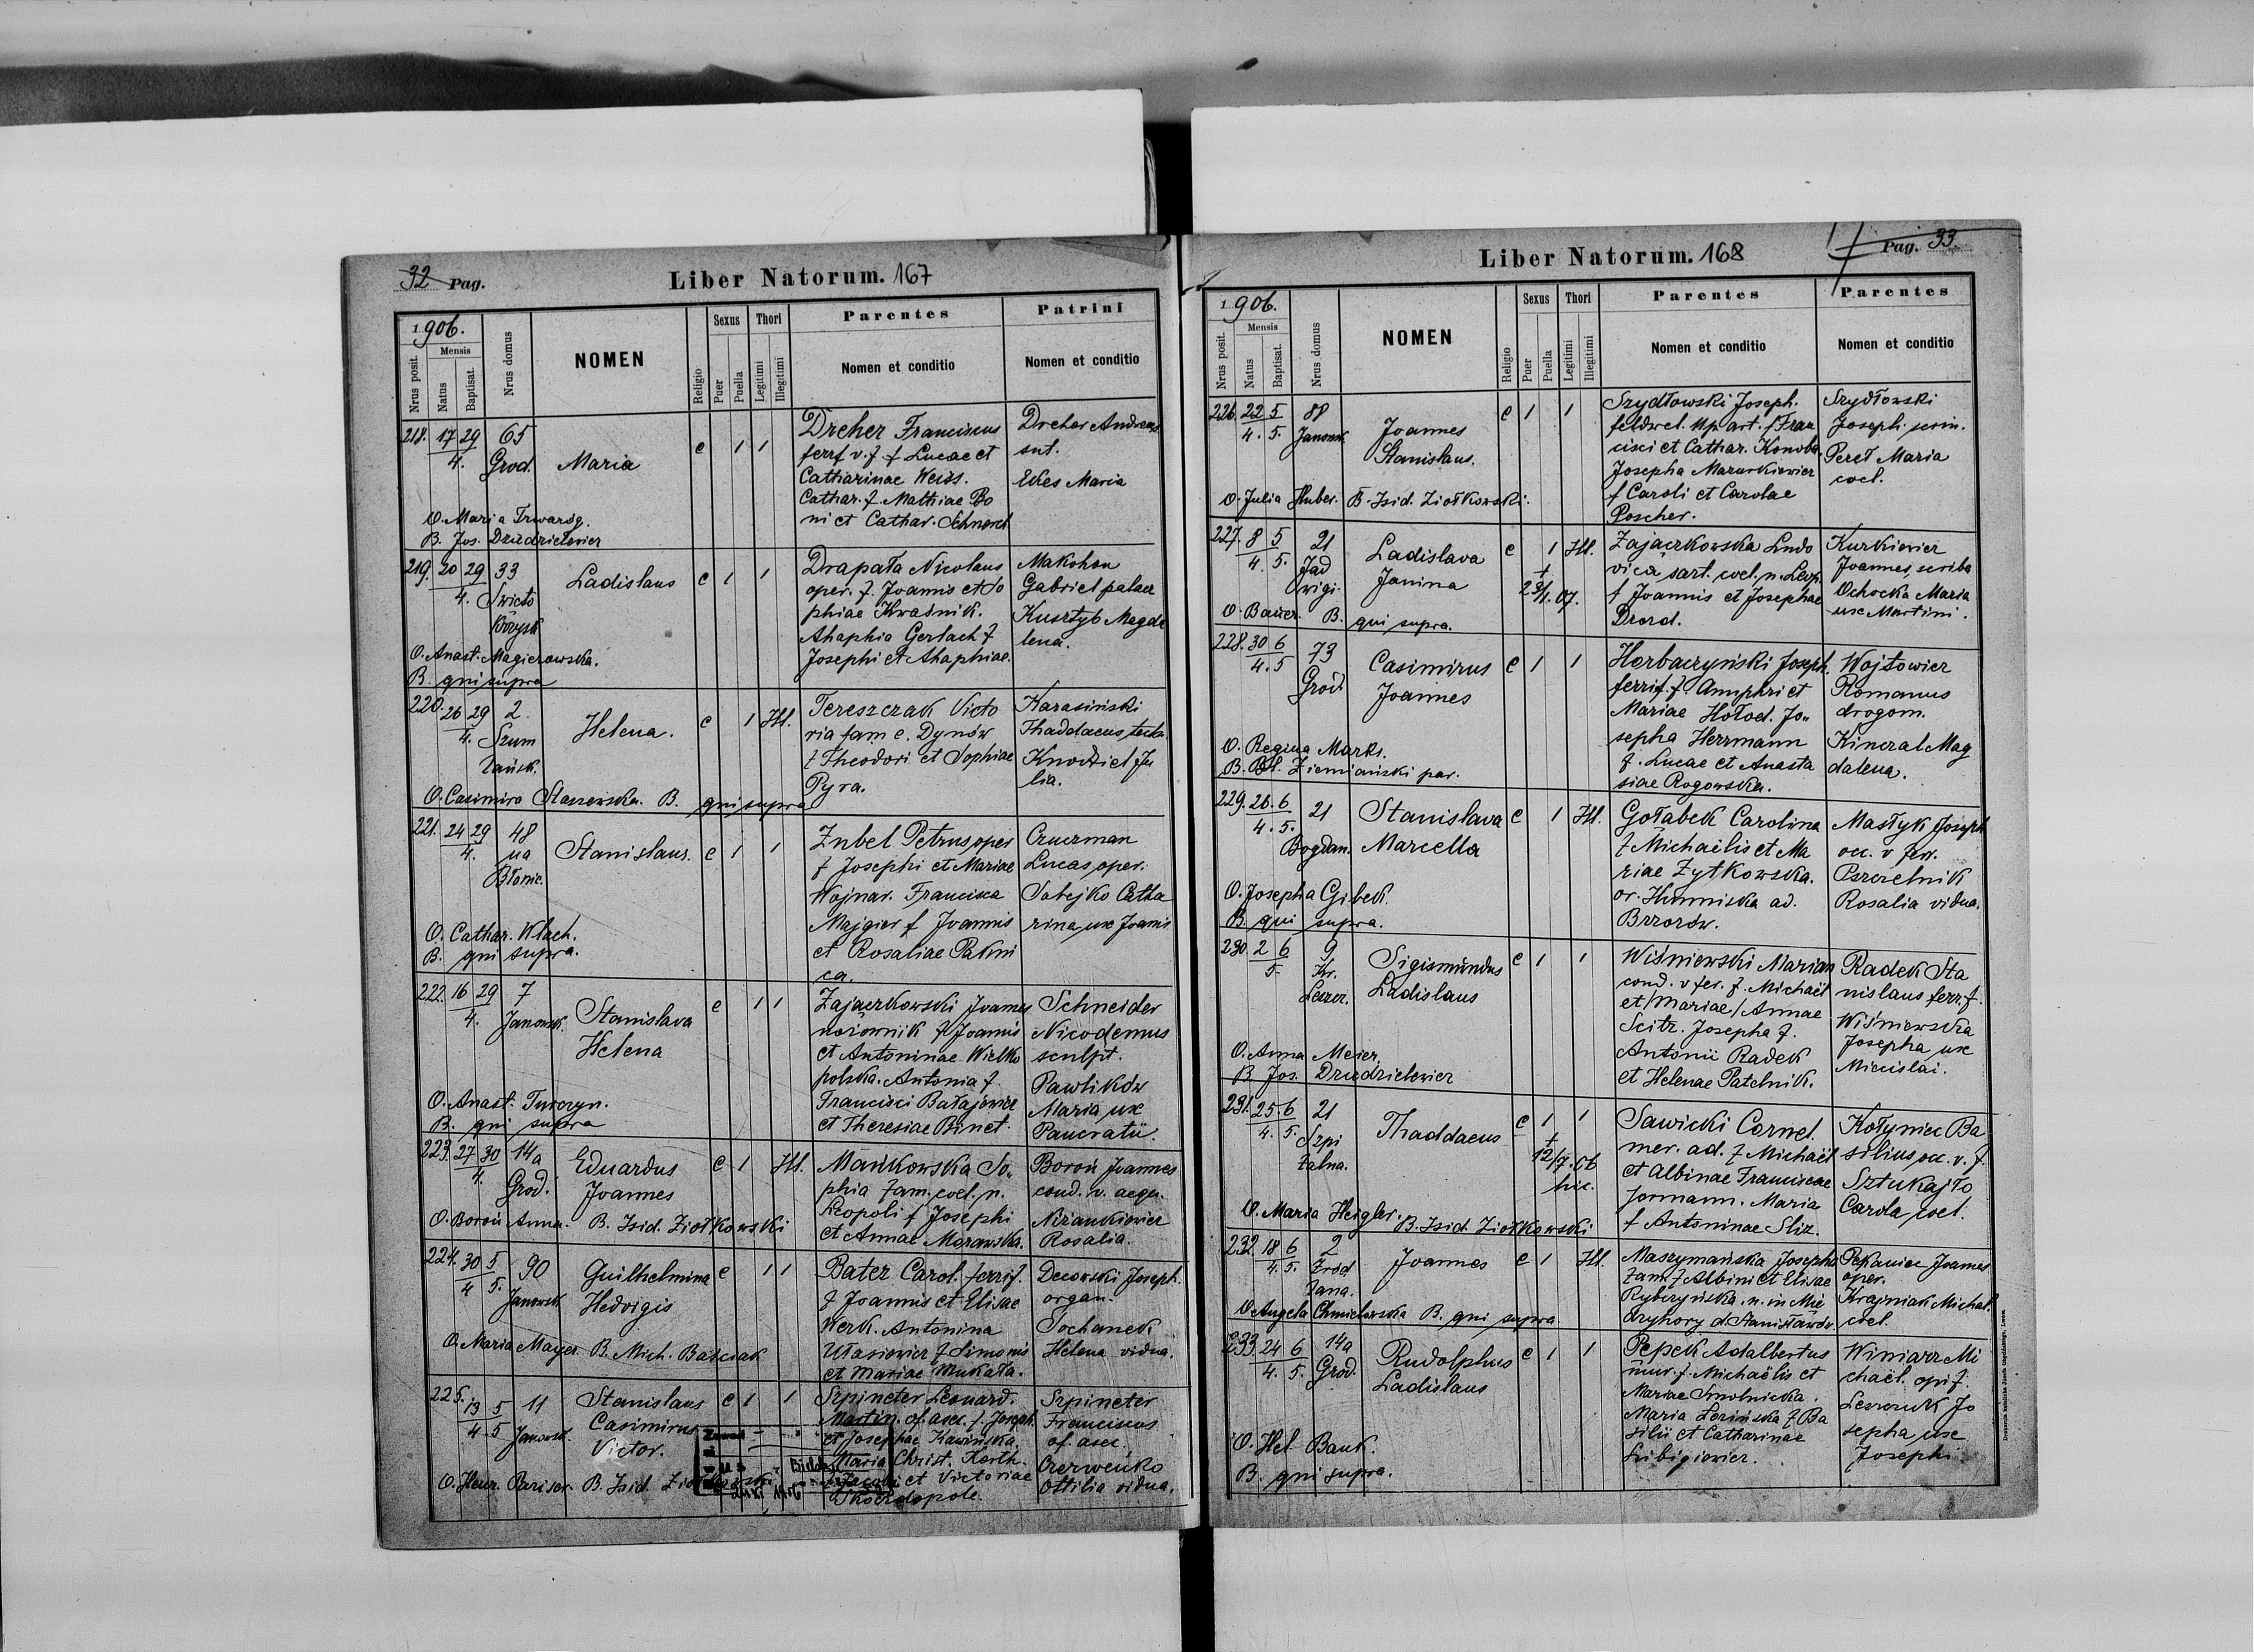 32 Pag.
Liber Natorum. 167
1906.
Nrus posit.
Mensis
Natus
Baptisat.
Nrus domus
NOMEN
Religio
Sexus
Puer
Puella
Thori
Legitimi
Illegitimi
Parentes
Nomen et conditio
Patrini
Nomen et conditio
218. 17 29 65
4. Grod. Maria c 1 1
Dreher Franciscus
ferrf v. f. f Lucae et
Catharinae Weiss.
Cathar. f. Mathiae Bo
ni et Cathar. Schnerch
Dreher Andreas
sut.
Ekes Maria
O. Maria Trwaróg.
B. Jos. Dziedzielewicz
219. 20 29 33
4. Święto
Krzysk
Ladislaus c 1 1
Drapała Nicolaus
oper. f. Joannis et So
phiae Kraśnik.
Ahaphia Gerlach f
Josephi et Ahaphiae.
Makohon
Gabriel palacz
Kusztyb Magda
lena.
O. Anast. Magierowska.
B. qui supra
220. 26 29 2
4. Szum
lańsk.
Helena. c 1 Ill.
Tereszczak Victo
ria fam e. Dynów
f Theodori et Sophiae
Pyra.
Karasiński
Thaddaeus, techn.
Knodziel Ju
lia.
O. Casimira Staszewska. B. qui supra
221. 24 29 48
4. na
Błonie.
Stanislaus. c 1 1
Zubel Petrus, oper
f Josephi et Mariae
Wojnar. Francisca
Majgier f Joannis
et Rosaliae Pakni
ca.
Czuczman
Lucas, oper.
Sabejko Catha
rina, ux Joannis
O. Cathar. Klach.
B. qui supra.
222. 16 29 7
4. Janowsk.
Stanislava
Helena
c 1 1
Zajaczkowski Joannes
nożownik f Joannis
et Antoninae Wielko
polska. Antonia f.
Francisci Bałajewicz
et Theresiae Binet.
Schneider
Nicodemus
sculpt.
Pawlików
Maria ux
Pancratii.
O. Anast. Turczyn.
B. qui supra
223. 27 30 14a
4. Grod.
Eduardus
Joannes
c 1 Ill.
Mańkowska So
phia fam. coel. n.
Leopoli f Josephi
et Annae Morawska.
Boroń Joannes
cond. v. aegr.
Niżankiewicz
Rosalia.
O. Boroń Anna. B. Isid. Ziołkowski
224. 30 5 90
4 5. Janowsk
Guilhelmina
Hedvigis
c 1 1
Bater Carol. ferrif.
f Joannis et Elisae
Werk. Antonina
Ułasiewicz f Simonis
et Mariae Mukała.
Decowski Joseph.
organ.
Sochanek
Helena vidua.
O. Maria Mayer. B. Mich. Baściak
225. 13 5 11
4 5 Janowsk.
Stanislaus
Casimirus
Victor.
c 1 1
Szpineter Leonard.
Martin. of. asec. f. Joseph.
et Josephae Kawińska.
Maria Christ. Korth.
f Jacobi et Victoriae
Skordopole.
Szpineter
Franciscus
of. asec.
Czerweńko
Ottilia vidua.
O. Henr. Pariser. B. Isid. Ziołkowski
Liber Natorum. 168
Pag. 33
1906.
Nrus posit.
Mensis
Natus
Baptisat.
Nrus domus
NOMEN
Religio
Sexus
Puer
Puella
Thori
Legitimi
Illegitimi
Parentes
Nomen et conditio
Parentes
Nomen et conditio
226. 22 5 88
4. 5. Janowsk.
Joannes
Stanislaus.
c 1 1
Szydłowski Joseph.
feldwel. Mp art. f Fran
cisci et Cathar. Konoba
Josepha Mazurkiewicz
f Caroli et Carolae
Poscher.
Szydłowski
Joseph. serin.
Peret Maria
coel.
O. Julia Huber. B. Isid. Ziołkowski.
227. 8 5 21
4. 5. Jad
wigi.
Ladislava
Janina
c 1 Ill.
+
23/1. 07.
Zajaczkowska Ludo
vica sart. coel. n. Leop.
f Joannis et Josephae
Drozd.
Kurkiewicz
Joannes, scriba
Ochocka Maria
ux Martini.
O. Bauer. B. qui supra.
228. 30 6 73
4. 5 Grod.
Casimirus
Joannes
c 1 1
Horbaczyński Joseph.
ferrif. f Anuphri et
Mariae Hołod. Jo
sepha Herrmann
f. Lucae et Anasta
siae Rogowska.
Wojtowicz
Romanus
drogom.
Kineral Mag
dalena.
O. Regina Marks.
B. Bł. Ziemiański par.
229. 26. 6 21
4. 5. Bogdan.
Stanislava
Marcella
c 1 Ill.
Gołabek Carolina
f Michaëlis et Ma
riae Żytkowska.
or. Humniska ad.
Brzozów.
Mastyk Joseph
oc. v ferr.
Pszczelnik
Rosalia vidua.
O. Josepha Gibek.
B. qui supra.
230. 2 6 9
5. Kr.
Leszcz.
Sigismundus
Ladislaus
c 1 1
Wiśniewski Marian
cond. v fer. f. Michaël
et /Mariae/ Annae
Seitz. Josepha f.
Antonii Radek
et Helenae Patelnik.
Radek Sta
nislaus ferr. f.
Wiśniewska
Josepha ux
Micislai.
O. Anna Meier.
B. Jos. Dziedzielewicz
231. 25. 6 21
4. 5. Szpi
talna.
Thaddaeus
c 1 1
+
12/7. 06
hic.
Sawicki Cornel.
mer. ad. f Michaël
et Albinae Franciscae
Jormann. Maria
f Antoninae Sliz.
Kołyniec Ba
silius, oc. v. f.
Sztukajło
Carola coel.
O. Maria Heigler. B. Isid. Ziołkowski
232. 18 6 2
4. 5. Źród
lana.
Joannes c 1 Ill.
Maszymańska Josepha
fam. f Albini et Elisae
Rybczyńska. n. in Mie
dryhory d. Stanisławów.
Pekaniec Joannes
oper.
Krajniak Michal.
coel.
O. Angela Chmielowska B. qui supra
233. 24 6 14a
4. 5. Grod.
Rudolphus
Ladislaus
c 1 1
Pepek Adalbertus
mur. f. Michaëlis et
Mariae Smolnicka.
Maria Łozińska f Ba
silii et Catharinae
Łubigiewicz.
Winiarz Mi
chaël. opif.
Leszczuk Jo
sepha ux
Josephi
O. Hel. Bauk.
B. qui supra.